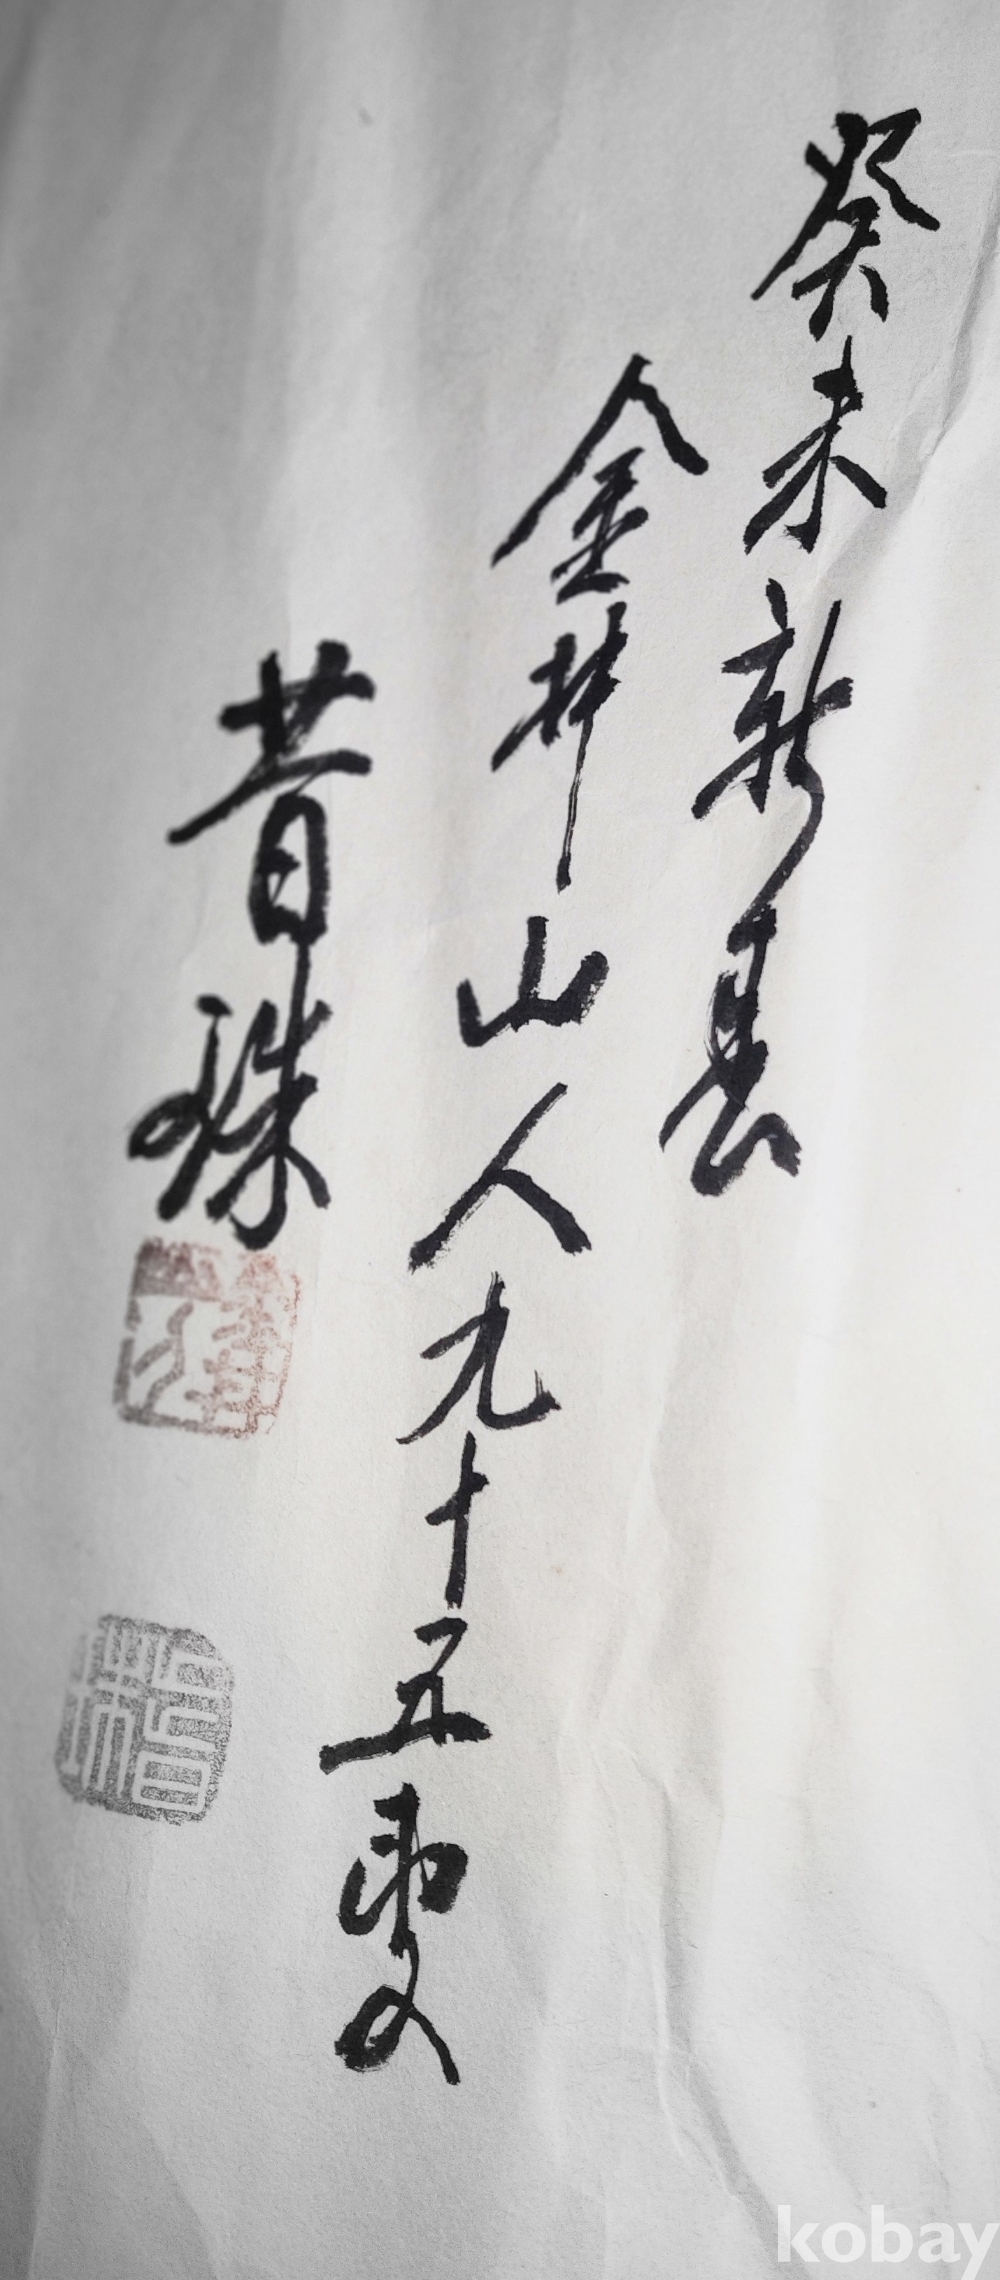 癸未新春
金井山人九十五叟
昔珠
kobay